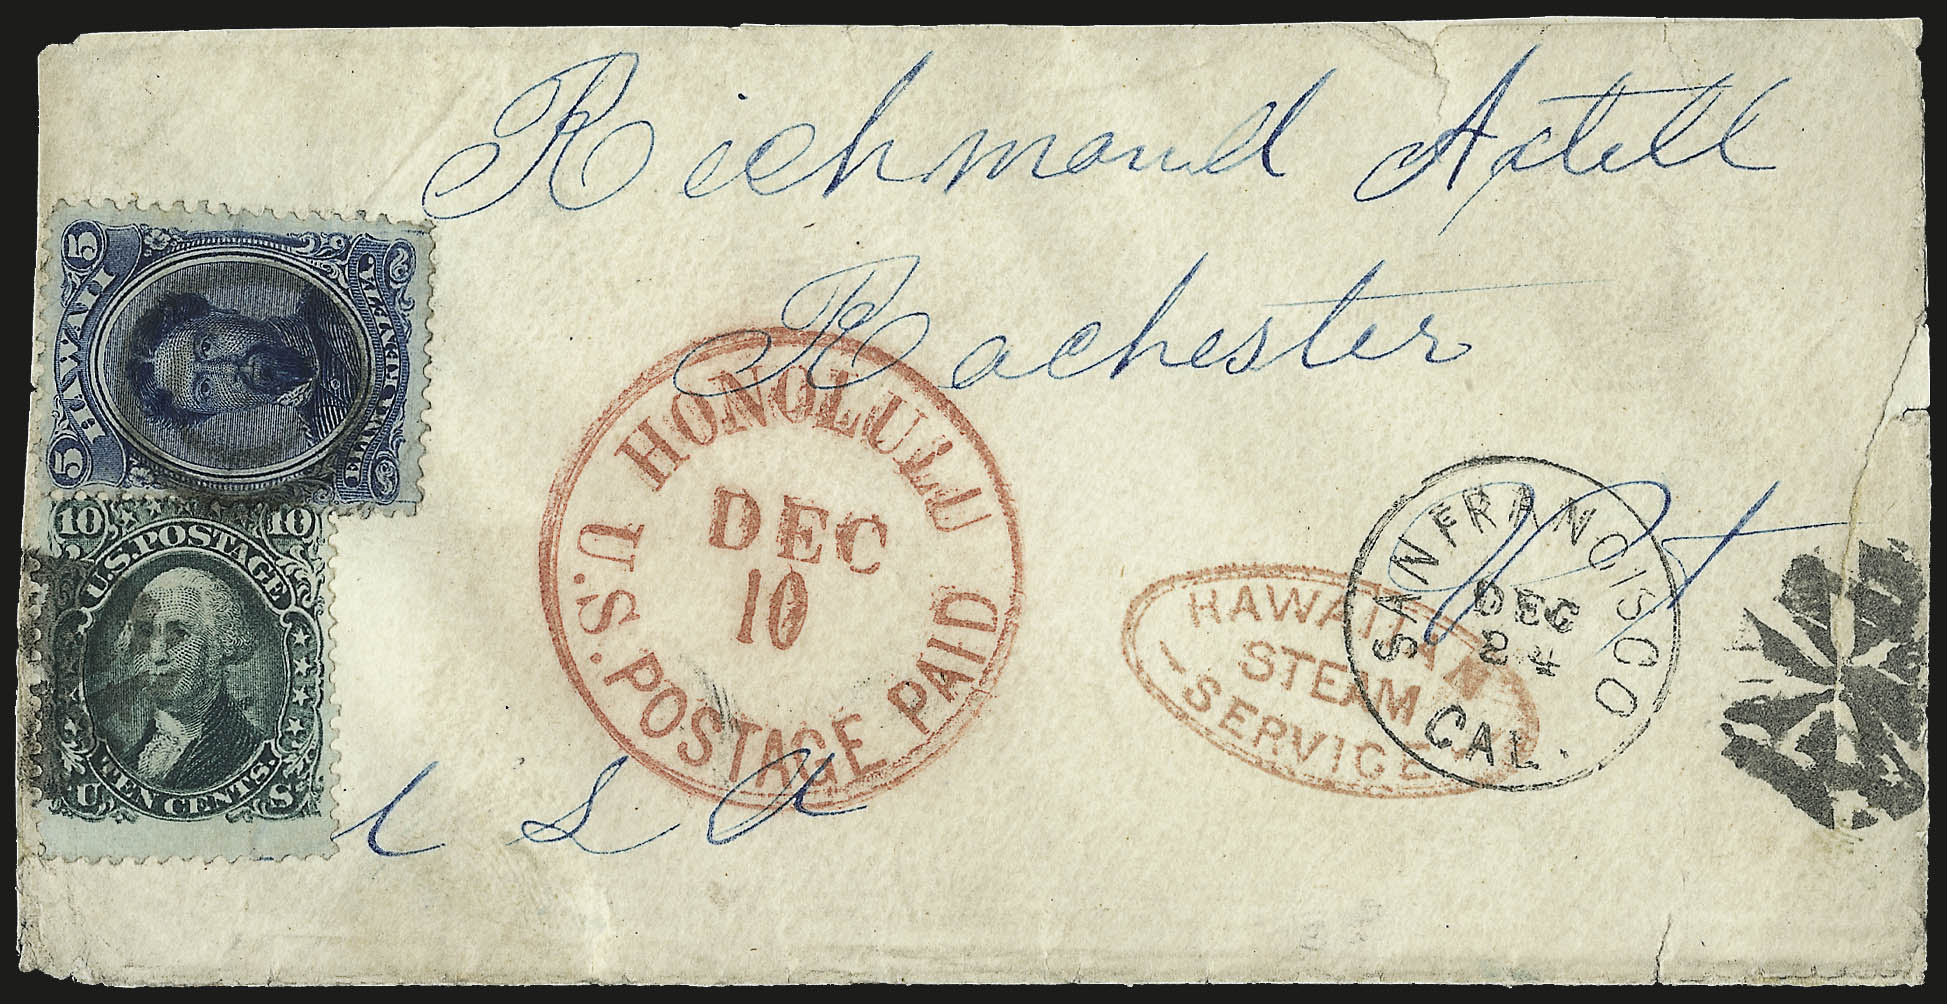 Richmond Axtell
Rochester
Vt
U S A
5 HAWAII 5
ELUA KENETA
10 10
U.S. POSTAGE
TEN CENTS.
U S
HONOLULU
DEC
10
U.S. POSTAGE PAID
HAWAIIAN
STEAM
SERVICE
SAN FRANCISCO
DEC
24
CAL.